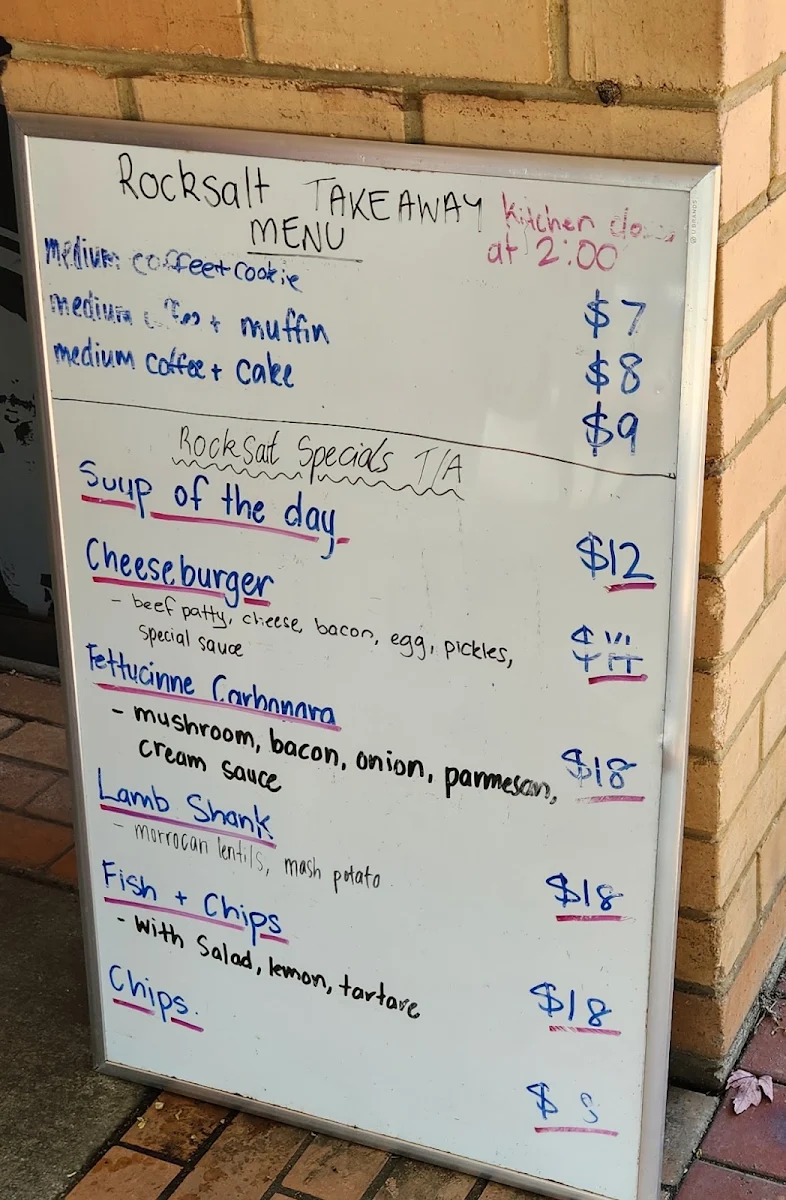 Rocksalt TAKEAWAY
MENU
Kitchen
at 2:00
medium coffee + cookie $7
medium coffee + muffin $8
medium coffee + cake $9
Rocksalt Specials T/A
Soup of the day $12
Cheeseburger
- beef patty, cheese, bacon, egg, pickles,
special sauce
Fettucinne Carbonara $18
- mushroom, bacon, onion, parmesan,
cream sauce
Lamb Shank $18
- morrocan lentils, mash potato
Fish + Chips $18
- with Salad, lemon, tartare
Chips. $8